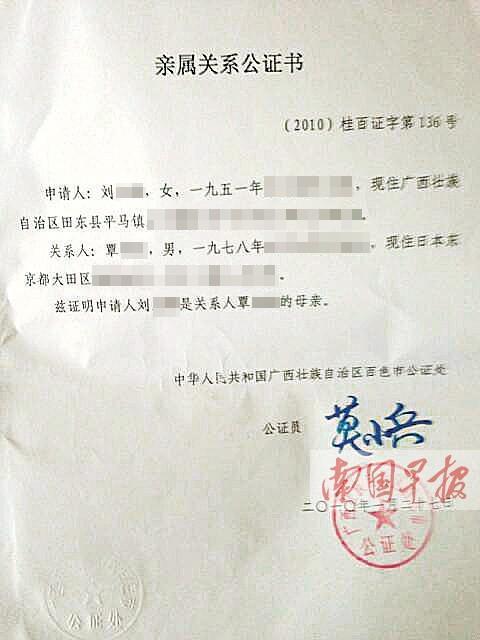 亲属关系公证书
（2010）桂百证字第136号
申请人：刘，女，一九五一年，现住广西壮族
自治区田东县平马镇。
关系人：覃，男，一九七八年，现住日本东
京都大田区。
兹证明申请人刘是关系人覃的母亲。
中华人民共和国广西壮族自治区百色市公证处
公证员 莫小兵
南国早报
二〇一〇年月二十七日
公证处
公证处